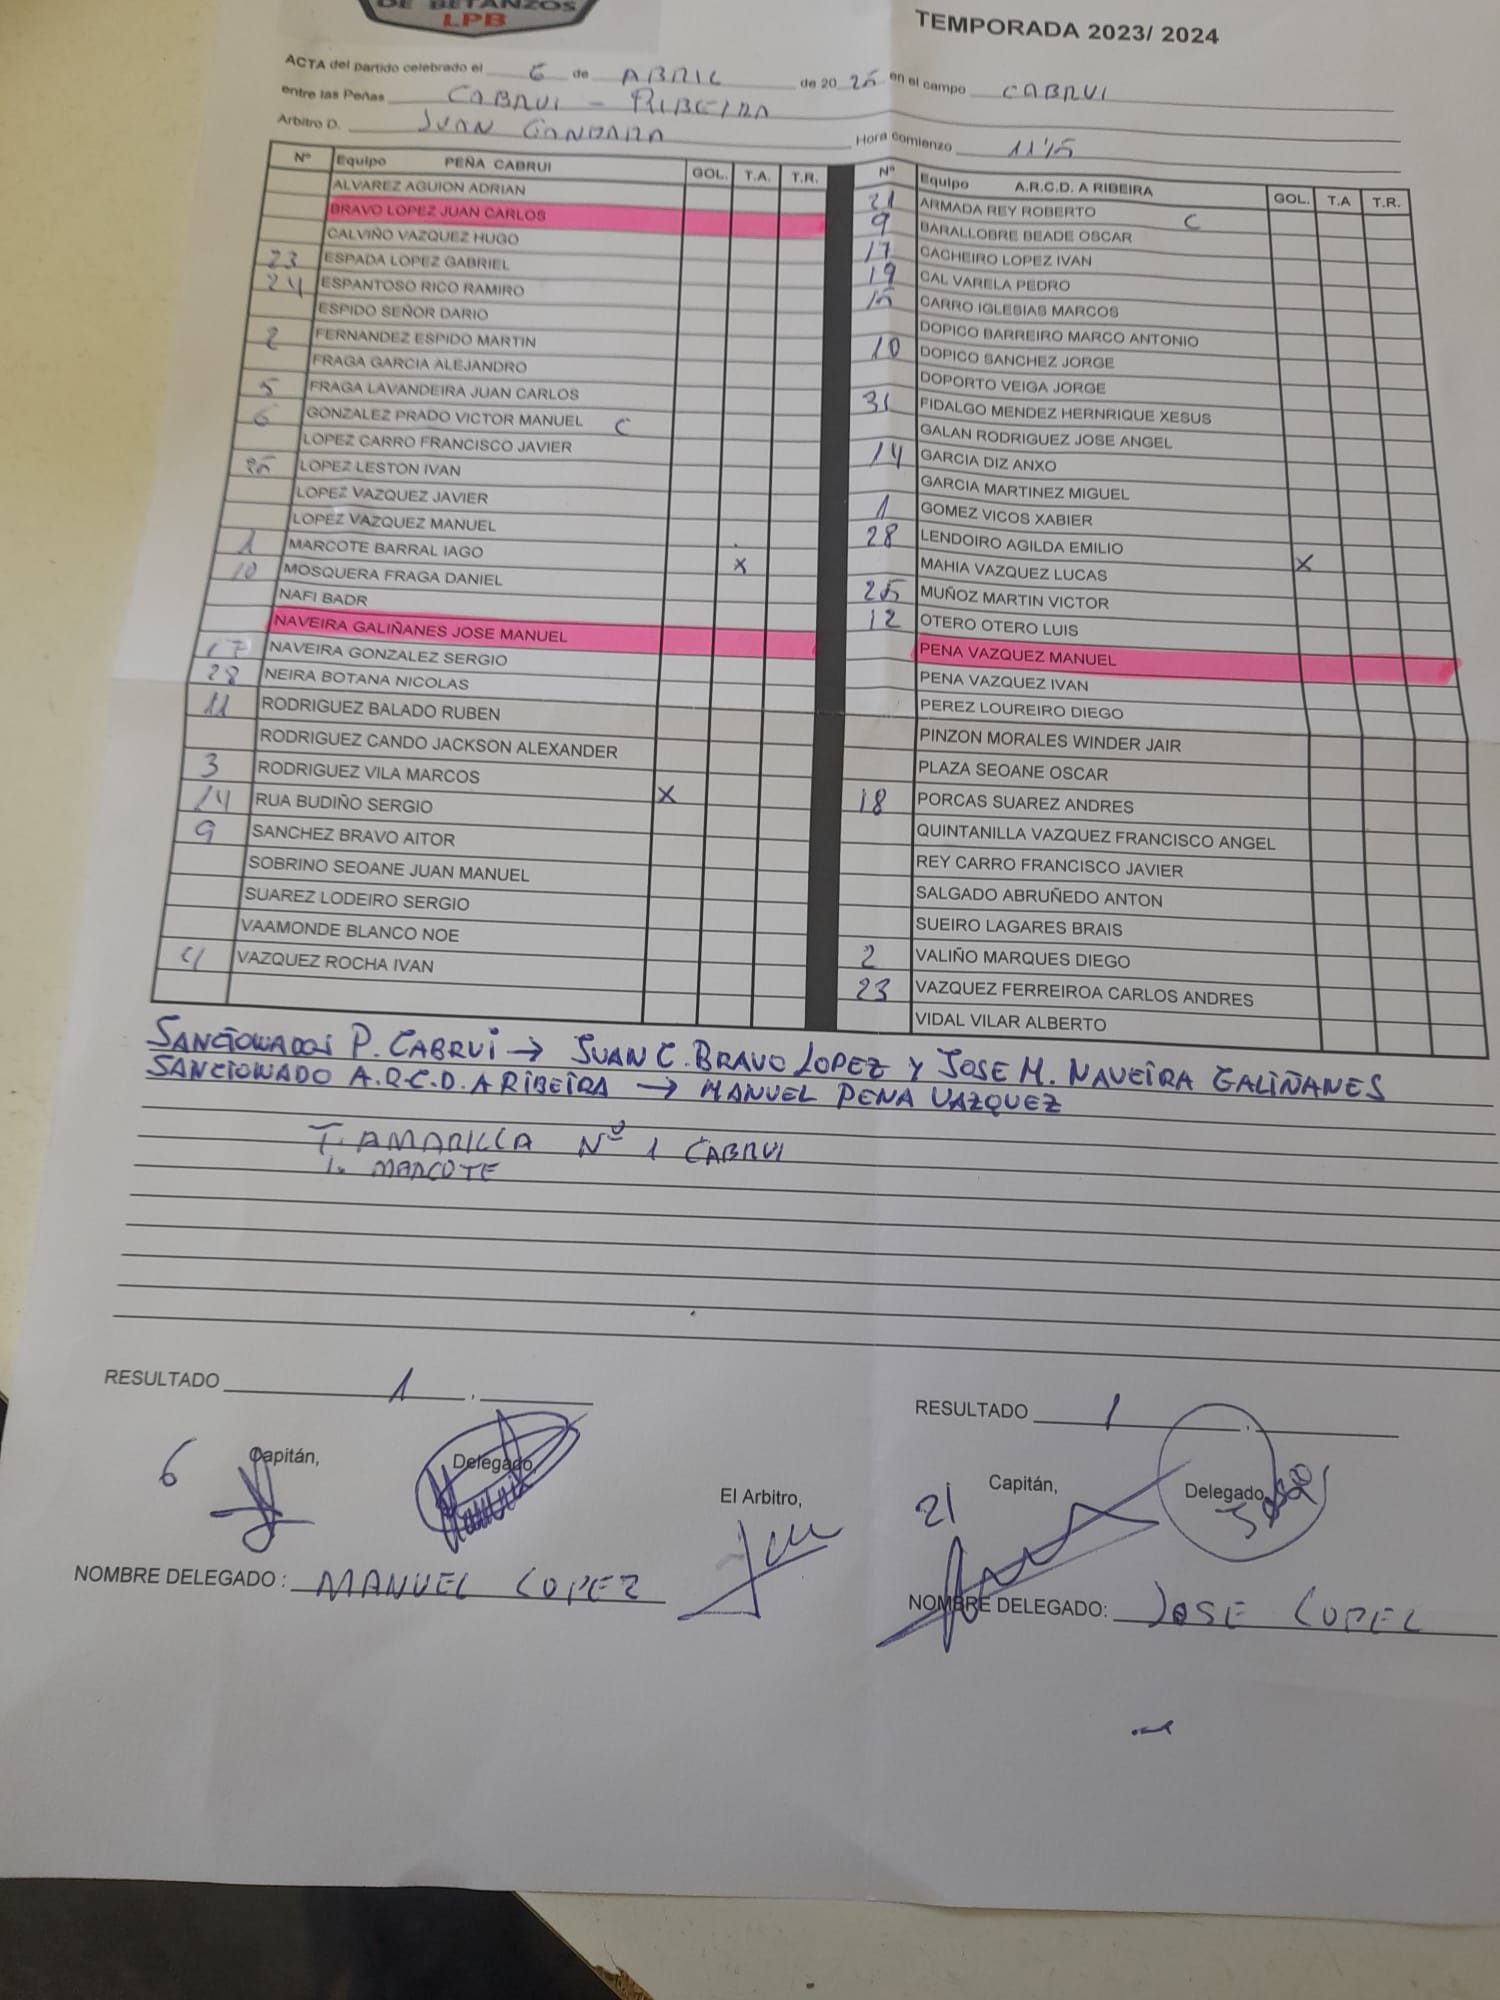 DE BETANZOS
LPB
TEMPORADA 2023/ 2024
ACTA del partido celebrado el 6 de ABRIL de 20 25 en el campo CABRUI
entre las Peñas CABRUI - RIBEIRA
Arbitro D. JUAN GANDARA Hora comienzo 11'15
Nº Equipo PEÑA CABRUI GOL. T.A. T.R.
ALVAREZ AGUION ADRIAN
BRAVO LOPEZ JUAN CARLOS
CALVIÑO VAZQUEZ HUGO
23 ESPADA LOPEZ GABRIEL
24 ESPANTOSO RICO RAMIRO
ESPIDO SEÑOR DARIO
2 FERNANDEZ ESPIDO MARTIN
FRAGA GARCIA ALEJANDRO
5 FRAGA LAVANDEIRA JUAN CARLOS
6 GONZALEZ PRADO VICTOR MANUEL C
LOPEZ CARRO FRANCISCO JAVIER
25 LOPEZ LESTON IVAN
LOPEZ VAZQUEZ JAVIER
LOPEZ VAZQUEZ MANUEL
1 MARCOTE BARRAL IAGO X
10 MOSQUERA FRAGA DANIEL
NAFI BADR
NAVEIRA GALIÑANES JOSE MANUEL
17 NAVEIRA GONZALEZ SERGIO
28 NEIRA BOTANA NICOLAS
11 RODRIGUEZ BALADO RUBEN
RODRIGUEZ CANDO JACKSON ALEXANDER
3 RODRIGUEZ VILA MARCOS
14 RUA BUDIÑO SERGIO X
9 SANCHEZ BRAVO AITOR
SOBRINO SEOANE JUAN MANUEL
SUAREZ LODEIRO SERGIO
VAAMONDE BLANCO NOE
VAZQUEZ ROCHA IVAN
Nº Equipo A.R.C.D. A RIBEIRA GOL. T.A T.R.
21 ARMADA REY ROBERTO C
9 BARALLOBRE BEADE OSCAR
17 CACHEIRO LOPEZ IVAN
19 CAL VARELA PEDRO
15 CARRO IGLESIAS MARCOS
DOPICO BARREIRO MARCO ANTONIO
10 DOPICO SANCHEZ JORGE
DOPORTO VEIGA JORGE
31 FIDALGO MENDEZ HERNRIQUE XESUS
GALAN RODRIGUEZ JOSE ANGEL
14 GARCIA DIZ ANXO
GARCIA MARTINEZ MIGUEL
1 GOMEZ VICOS XABIER
28 LENDOIRO AGILDA EMILIO X
MAHIA VAZQUEZ LUCAS
25 MUÑOZ MARTIN VICTOR
12 OTERO OTERO LUIS
PENA VAZQUEZ MANUEL
PENA VAZQUEZ IVAN
PEREZ LOUREIRO DIEGO
PINZON MORALES WINDER JAIR
PLAZA SEOANE OSCAR
18 PORCAS SUAREZ ANDRES
QUINTANILLA VAZQUEZ FRANCISCO ANGEL
REY CARRO FRANCISCO JAVIER
SALGADO ABRUÑEDO ANTON
SUEIRO LAGARES BRAIS
2 VALIÑO MARQUES DIEGO
23 VAZQUEZ FERREIROA CARLOS ANDRES
VIDAL VILAR ALBERTO
SANCIONADOS P. CABRUI → JUAN C. BRAVO LOPEZ Y JOSE M. NAVEIRA GALIÑANES
SANCIONADO A.R.C.D. A RIBEIRA → MANUEL PENA VAZQUEZ
T. AMARILLA Nº 1 CABRUI
I. MARCOTE
RESULTADO 1
6 Capitán, Delegado,
NOMBRE DELEGADO : MANUEL LOPEZ
El Arbitro,
RESULTADO 1
21 Capitán, Delegado,
NOMBRE DELEGADO: JOSE LOPEZ